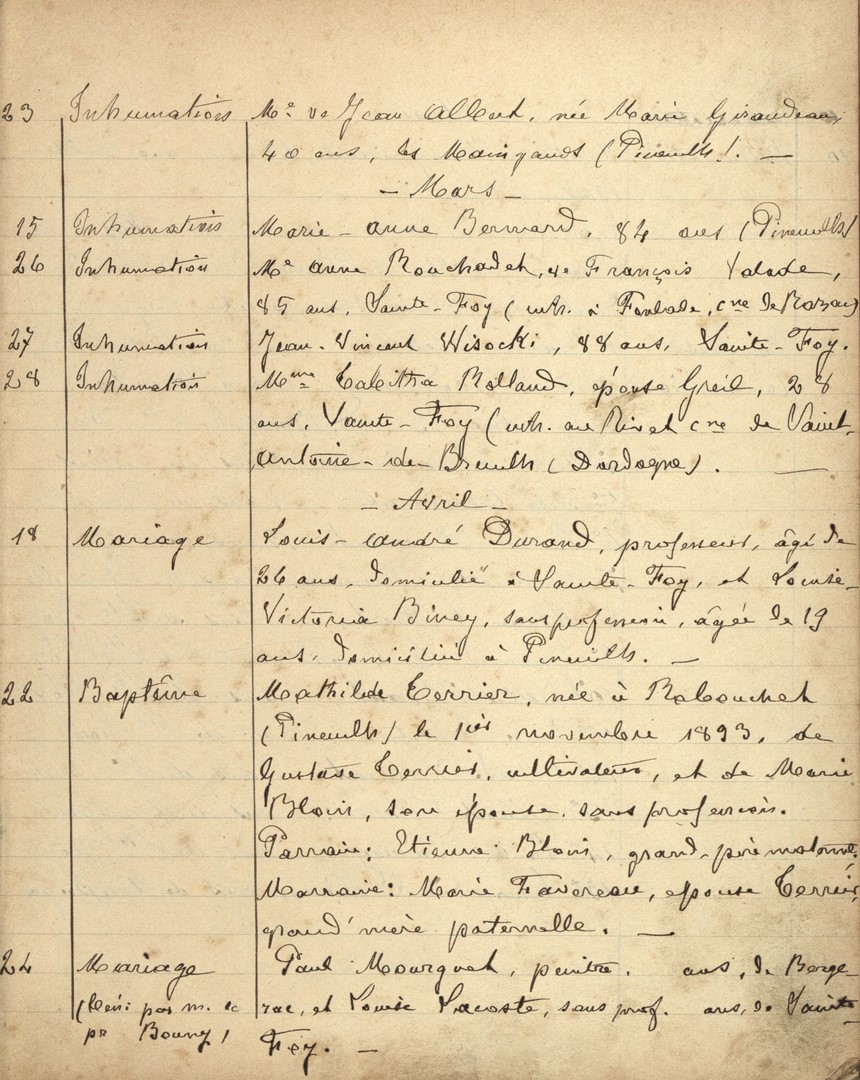 23 Inhumation Me ve Jean Albert, née Marie Girandeau,
40 ans, les Maingauds (Pineuilh). —
— Mars —
15 Inhumation Marie-Anne Bernard, 84 ans (Pineuilh)
26 Inhumation Me Anne Rouchadet, ve François Valade,
85 ans, Sainte-Foy (inh. à Fonlade, cne de Razac)
27 Inhumation Jean-Vincent Wisocki, 88 ans, Sainte-Foy.
28 Inhumation Mme Tabitha Rolland, épouse Greil, 28
ans, Sainte-Foy (inh. au Rivet cne de Saint-
Antoine-de-Breuilh (Dordogne). —
— Avril —
18 Mariage Louis-André Durand, professeur, âgé de
26 ans, domicilié à Sainte-Foy, et Louise-
Victoria Biney, sans profession, âgée de 19
ans, domiciliée à Pineuilh. —
22 Baptême Mathilde Terrier, née à Rabouchet
(Pineuilh) le 1er novembre 1893, de
Gustave Terrier, cultivateur, et de Marie
Blouin, son épouse, sans profession.
Parrain: Etienne Blouin, grand-père maternel.
Marraine: Marie Favereau, épouse Terrier,
grand'mère paternelle. —
24 Mariage Paul Mourguet, peintre, ans, de Berge
(béni par m. le rac, et Louise Lacoste, sans prof. ans, de Sainte-
pr Bouny) Foy. —